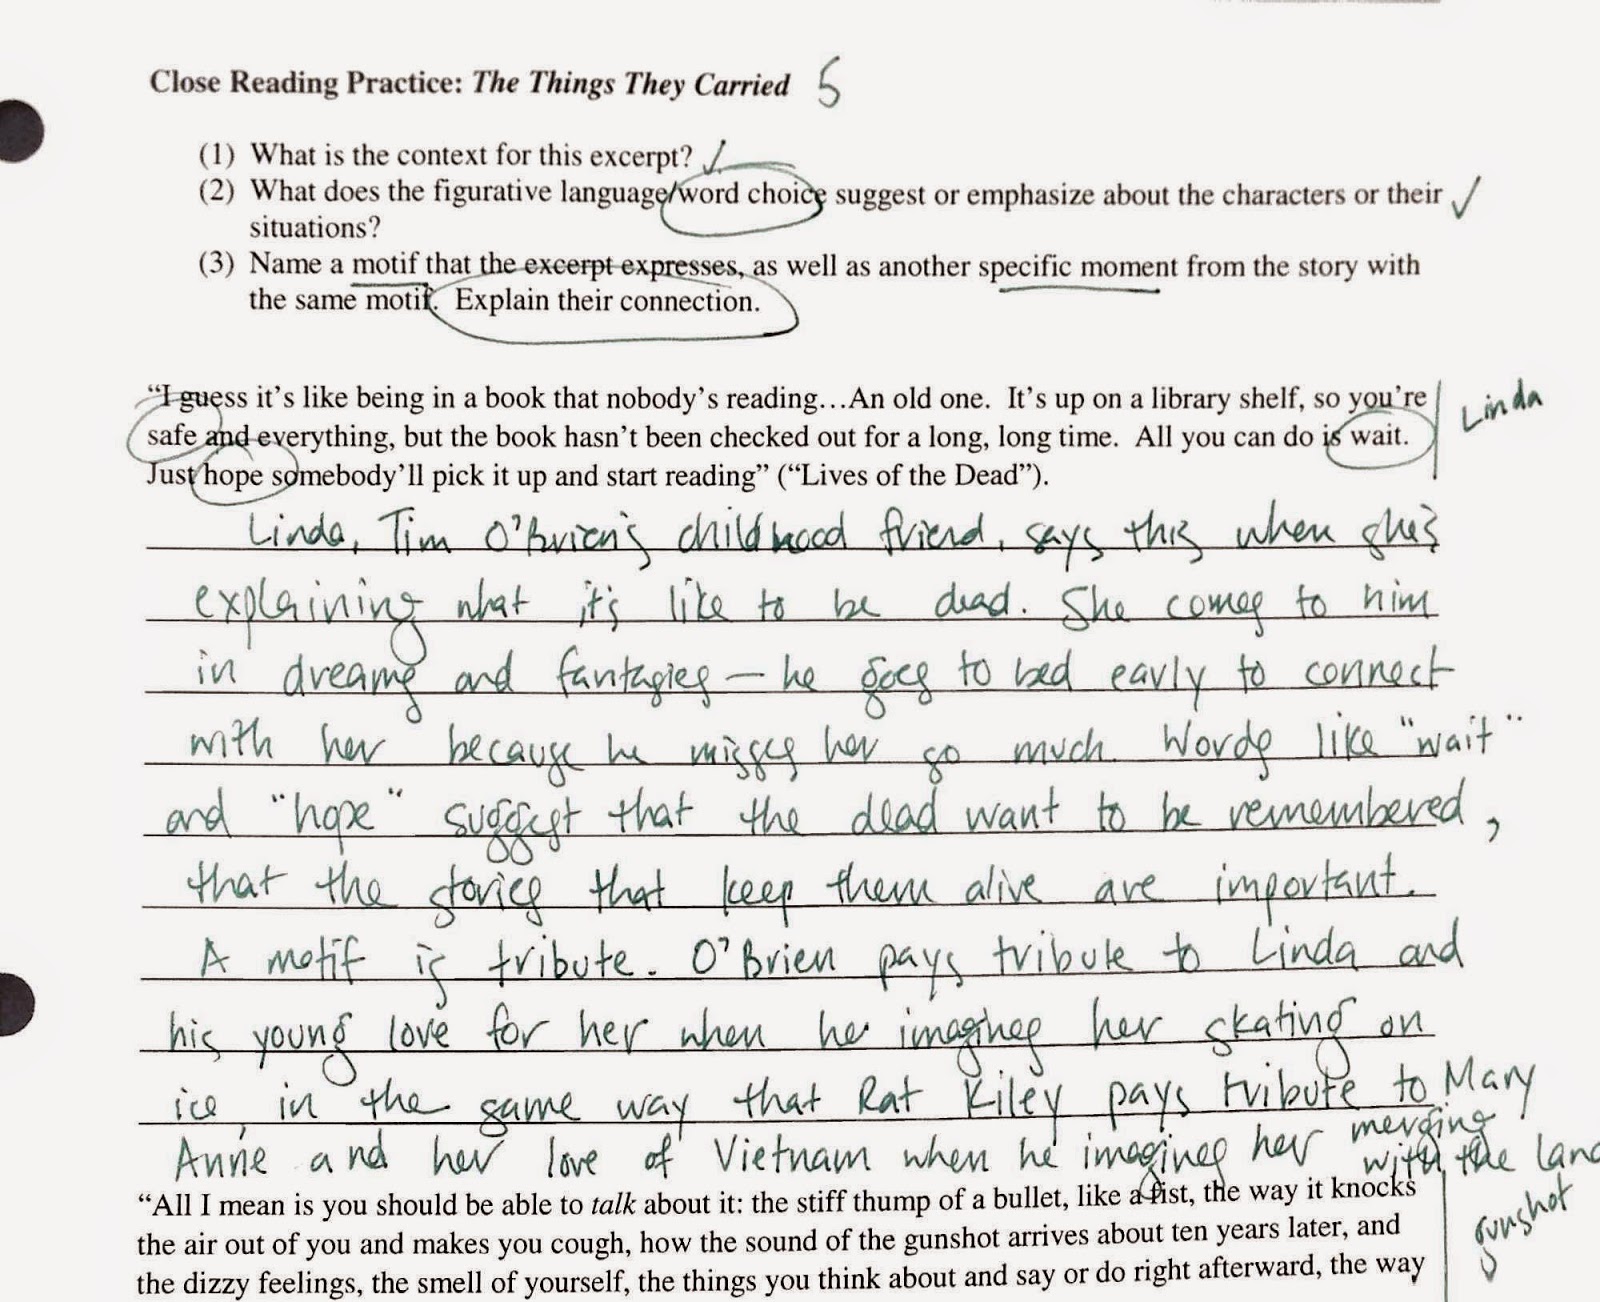 Close Reading Practice: The Things They Carried 5
(1) What is the context for this excerpt? ✓
(2) What does the figurative language/word choice suggest or emphasize about the characters or their ✓
situations?
(3) Name a motif that the excerpt expresses, as well as another specific moment from the story with
the same motif. Explain their connection.
“I guess it’s like being in a book that nobody’s reading…An old one. It’s up on a library shelf, so you’re
Linda
safe and everything, but the book hasn’t been checked out for a long, long time. All you can do is wait.
Just hope somebody’ll pick it up and start reading” (“Lives of the Dead”).
Linda, Tim O'Brien's childhood friend, says this when she's
explaining what it's like to be dead. She comes to him
in dreams and fantasies – he goes to bed early to connect
with her because he misses her so much. Words like "wait"
and "hope" suggest that the dead want to be remembered,
that the stories that keep them alive are important.
A motif is tribute. O'Brien pays tribute to Linda and
his young love for her when he imagines her skating on
ice, in the same way that Rat Kiley pays tribute to Mary
Anne and her love of Vietnam when he imagines her merging
with the land
“All I mean is you should be able to talk about it: the stiff thump of a bullet, like a fist, the way it knocks
gunshot
the air out of you and makes you cough, how the sound of the gunshot arrives about ten years later, and
the dizzy feelings, the smell of yourself, the things you think about and say or do right afterward, the way